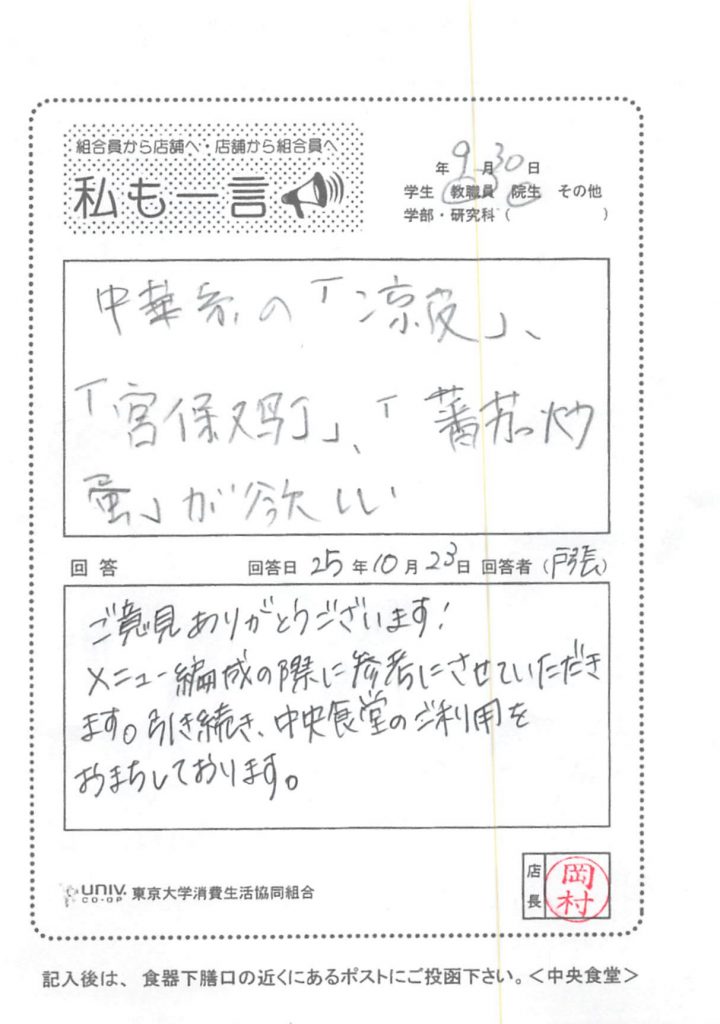 組合員から店舗へ・店舗から組合員へ
私も一言
年 9月 30日
学生 教職員 院生 その他
学部・研究科（ ）
中華系の「凉皮」、
「宫保鸡丁」、「蕃茄炒
蛋」が欲しい
回答 回答日 25年10月23日 回答者（戸張）
ご意見ありがとうございます!
メニュー編成の際に参考にさせていただき
ます。引き続き、中央食堂のご利用を
おまちしております。
UNIV. CO-OP 東京大学消費生活協同組合
店長 岡村
記入後は、食器下膳口の近くにあるポストにご投函下さい。＜中央食堂＞